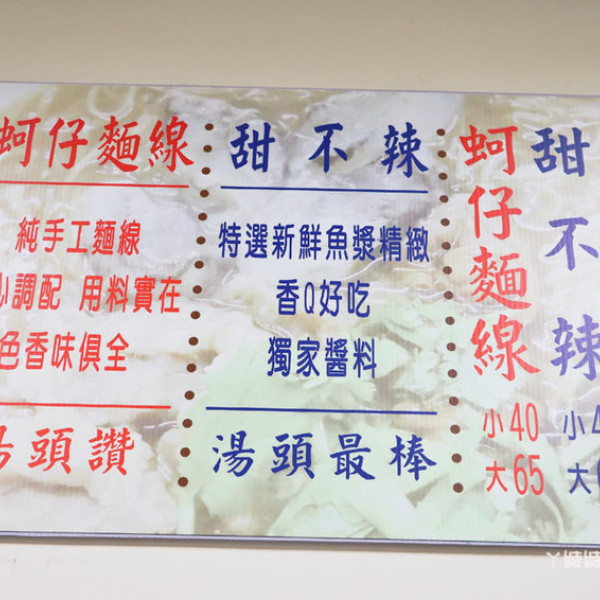 蚵仔麵線
純手工麵線
心調配 用料實在
色香味俱全
湯頭讚
甜不辣
特選新鮮魚漿精緻
香Q好吃
獨家醬料
湯頭最棒
蚵仔麵線
小40
大65
甜不辣
小4
大